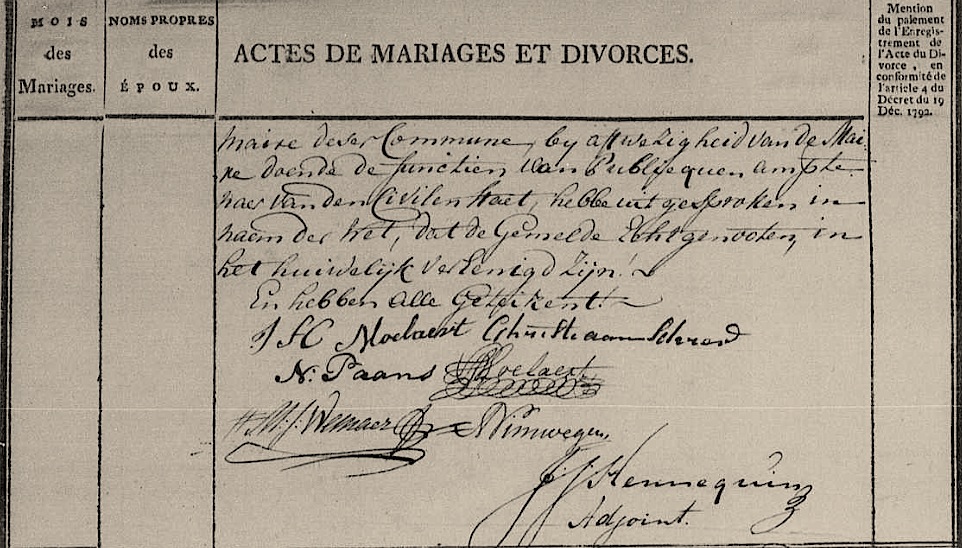 MOIS
des
Mariages.
NOMS PROPRES
des
ÉPOUX.
ACTES DE MARIAGES ET DIVORCES.
Mention
du paiement
de l'Enregis-
trement de
l'Acte du Di-
vorce, en
conformité de
l'article 4 du
Décret du 19
Déc. 1792.
maire dezer Commune, by afwezigheid van de Mai-
re doende de functien van Publijequen ampte-
naer van den Civilen Staet, hebbe uitgesproken in
naam der Wet, dat de Gemelde Echtgenooten, in
het huwelijk vereenigd zijn!
En hebben alle Geteikent!
J H Moelaert Christiaan
N. Paans Moelaert
M. J. Wemaer Nimwegen
J J Hennequin
Adjoint.